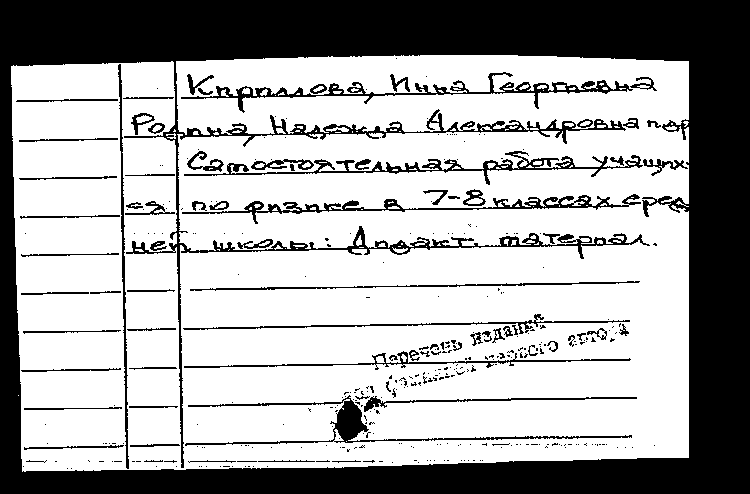 Кириллова, Инна Георгиевна
Родина, Надежда Александровна пар
Самостоятельная работа учащих-
ся по физике в 7-8 классах сред
ней школы: Дидакт. материал.
Перечень изданий
под фамилией первого автора